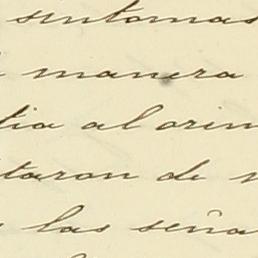 sintomas
manera
tia al orin
taron de
las seña